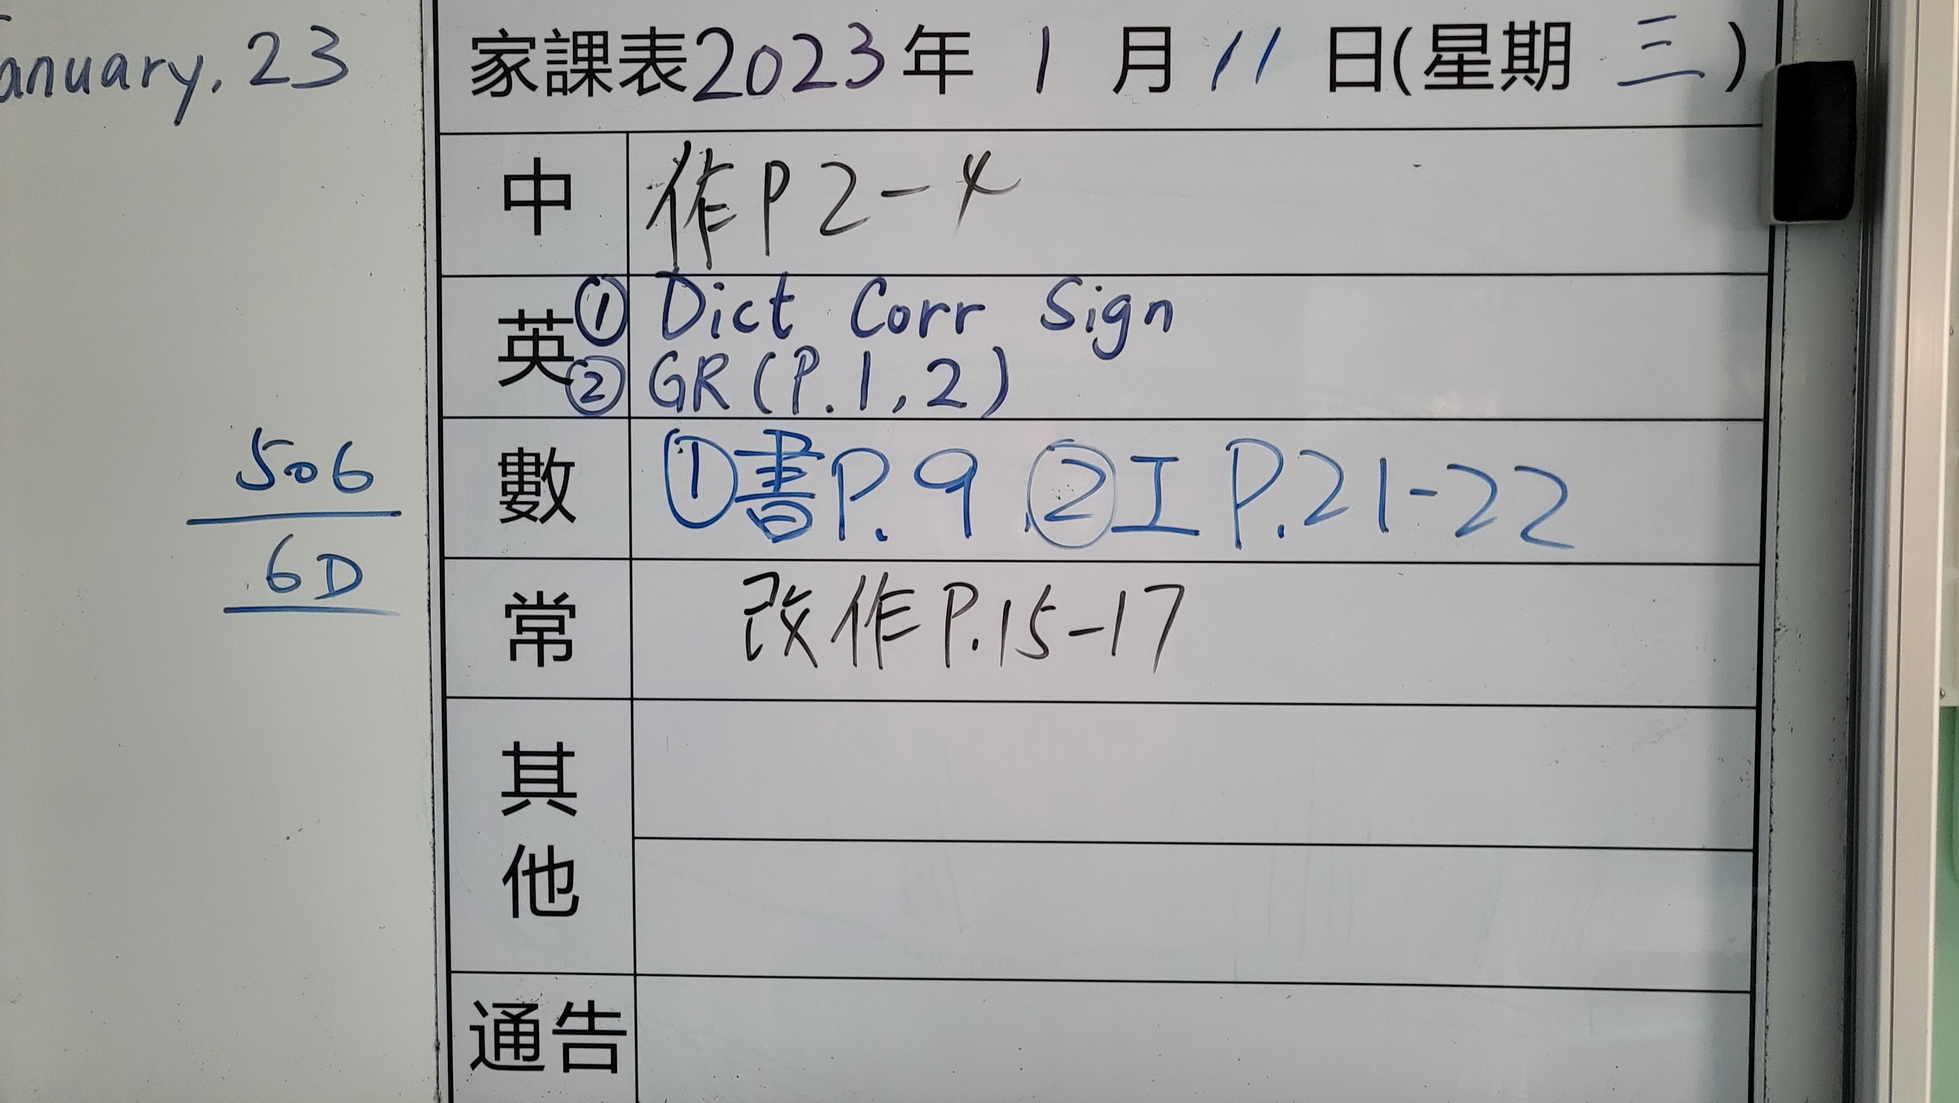 anuary, 23
家課表2023年 1 月 11 日(星期 三)
中 作P2-4
英 ① Dict Corr Sign
② GR(P.1,2)
數 ①書P.9 ②工P.21-22
506
6D
常 改作P.15-17
其他
通告